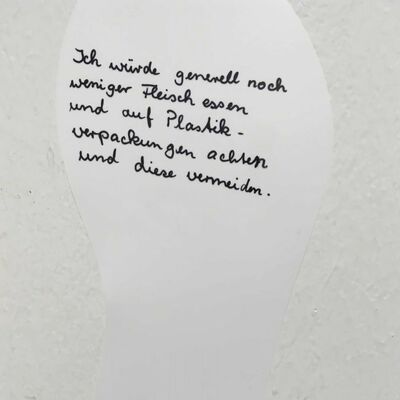 Ich würde generell noch
weniger Fleisch essen
und auf Plastik-
verpackungen achten
und diese vermeiden.